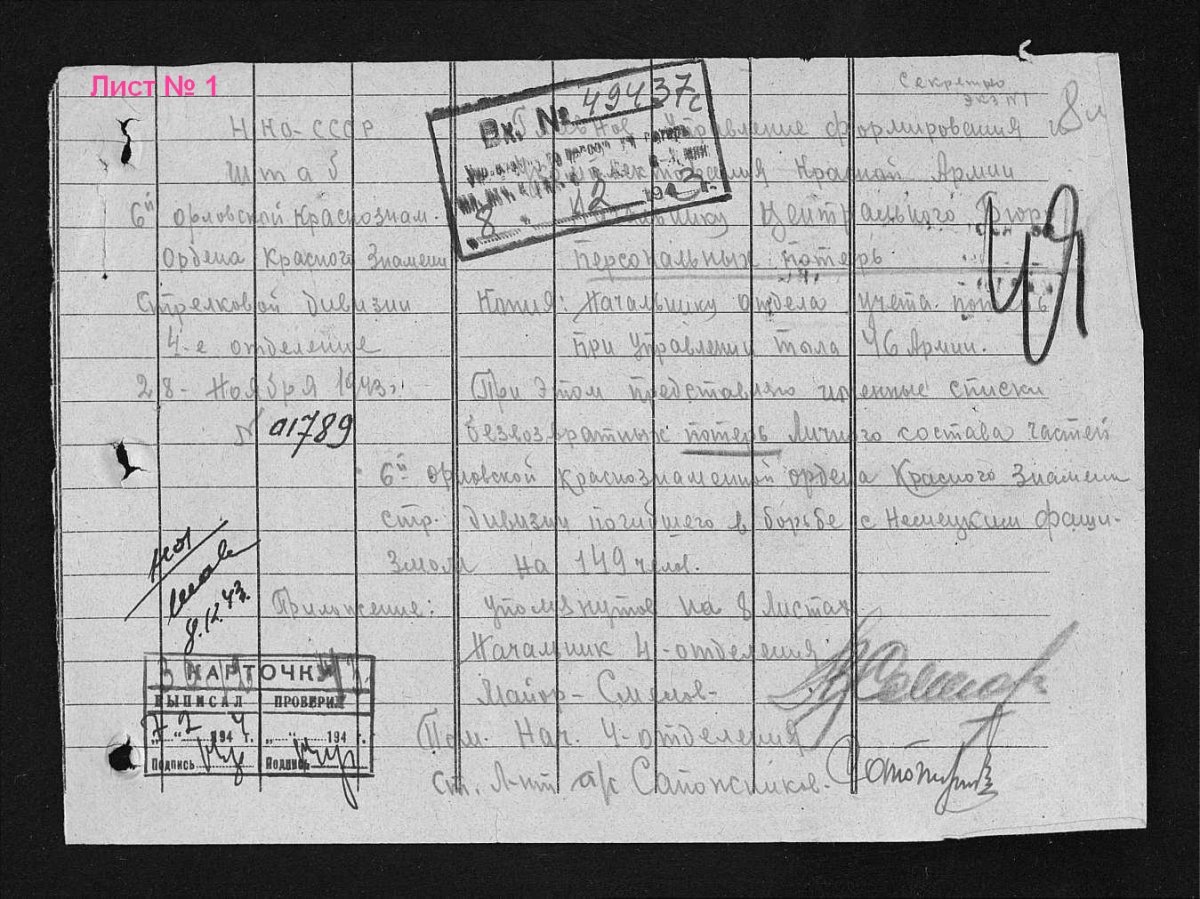 Лист № 1
Секретно
экз №1
8л
НКО-СССР
Штаб
6й Орловской Краснознам.
Ордена Красного Знамени
Стрелковой дивизии
4-е отделение
28- Ноября 1943г.
№ 01789
Вх. № 49437с
8 " 12 1943 г.
Главное Управление формирования и
комплектования Красной Армии
Начальнику Центрального Бюро
Персональных потерь
Копия: Начальнику отдела учета потерь
при Управлении тыла 46 Армии.
При этом представляю именные списки
безвозвратных потерь личного состава частей
6й Орловской Краснознаменной ордена Красного Знамени
стр. дивизии погибшего в борьбе с Немецким фаши-
змом на 149 челов.
8.12.43.
Приложение: упомянутое на 8 листах
Начальник 4-отделения
Майор- Смелов-
Пом. Нач. 4-отделения
ст. л-нт а/с Сапожников.
КАРТОЧКИ
ВЫПИСАЛ ПРОВЕРИЛ
194 г. „ “ 194 г.
Подпись Подпись